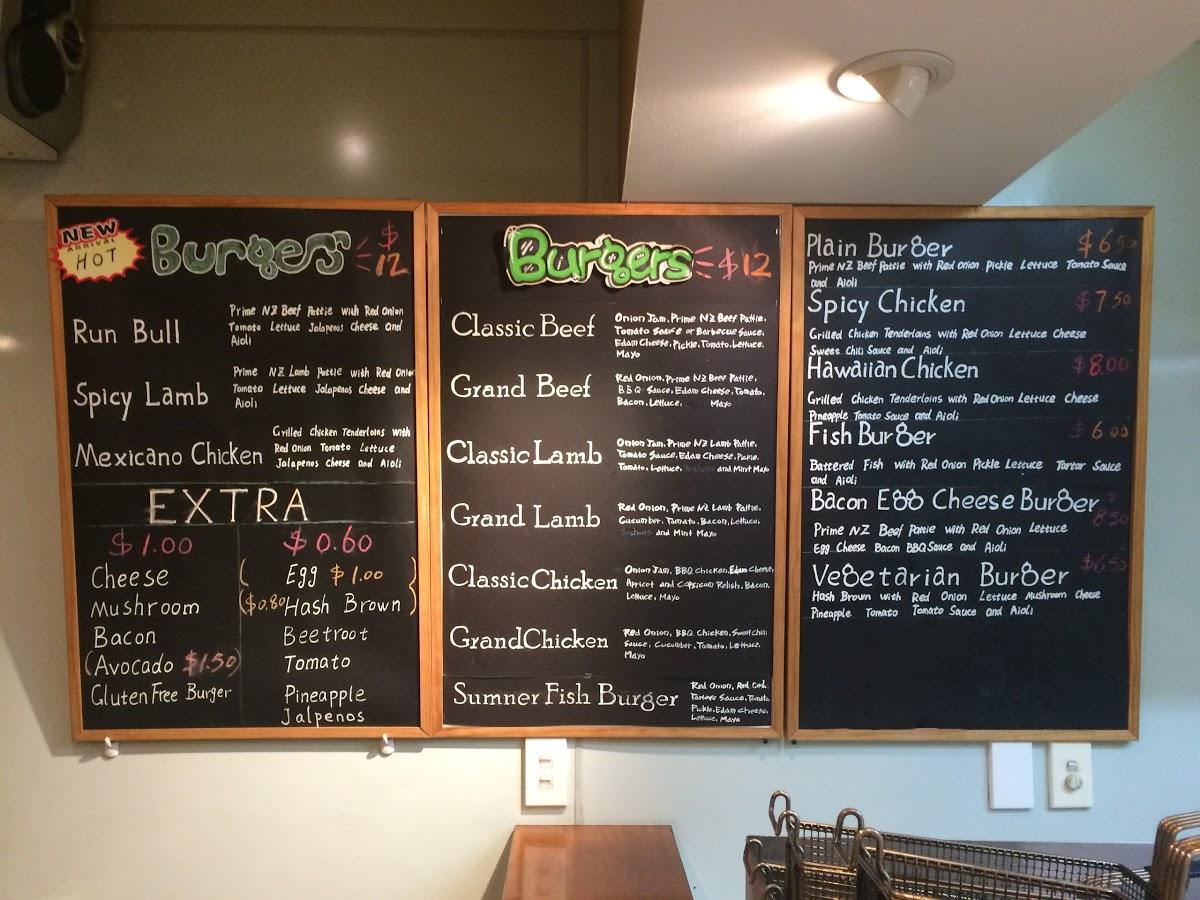 NEW
ARRIVAL
HOT
Burgers
$
12
Run Bull
Prime NZ Beef Pattie with Red Onion
Tomato Lettuce Jalapenos Cheese and
Aioli
Spicy Lamb
Prime NZ Lamb Pattie with Red Onion
Tomato Lettuce Jalopenos Cheese and
Aioli
Mexicano Chicken
Grilled Chicken Tenderloins with
Red Onion Tomato Lettuce
Jalapenos Cheese and Aioli
EXTRA
$1.00
Cheese
Mushroom
Bacon
(Avocado $1.50)
Gluten Free Burger
$0.60
(Egg $1.00)
($0.80 Hash Brown)
Beetroot
Tomato
Pineapple
Jalpenos
Burgers
$12
Classic Beef
Onion Jam, Prime NZ Beef Pattie,
Tomato Sauce or Barbecue Sauce,
Edam Cheese, Pickle, Tomato, Lettuce,
Mayo
Grand Beef
Red Onion, Prime NZ Beef Pattie,
BBQ Sauce, Edam Cheese, Tomato,
Bacon, Lettuce, Mayo
Classic Lamb
Onion Jam, Prime NZ Lamb Pattie,
Tomato Sauce, Edam Cheese, Pickle,
Tomato, Lettuce, and Mint Mayo
Grand Lamb
Red Onion, Prime NZ Lamb Pattie,
Cucumber, Tomato, Bacon, Lettuce,
and Mint Mayo
Classic Chicken
Onion Jam, BBQ Chicken, Edam Cheese,
Apricot and Capsicum Relish, Bacon,
Lettuce, Mayo
Grand Chicken
Red Onion, BBQ Chicken, Sweet Chili
Sauce, Cucumber, Tomato, Lettuce,
Mayo
Sumner Fish Burger
Red Onion, Red Cod,
Tartare Sauce, Tomato,
Pickle, Edam Cheese,
Lettuce, Mayo
Plain Burger $6.50
Prime NZ Beef Pattie with Red Onion Pickle Lettuce Tomato Sauce
and Aioli
Spicy Chicken $7.50
Grilled Chicken Tenderloins with Red Onion Lettuce Cheese
Sweet Chili Sauce and Aioli
Hawaiian Chicken $8.00
Grilled Chicken Tenderloins with Red Onion Lettuce Cheese
Pineapple Tomato Sauce and Aioli
Fish Burger $6.00
Battered Fish with Red Onion Pickle Lettuce Tartar Sauce
and Aioli
Bacon Egg Cheese Burger $
8.50
Prime NZ Beef Pattie with Red Onion Lettuce
Egg Cheese Bacon BBQ Sauce and Aioli
Vegetarian Burger $6.50
Hash Brown with Red Onion Lettuce Mushroom Cheese
Pineapple Tomato Tomato Sauce and Aioli